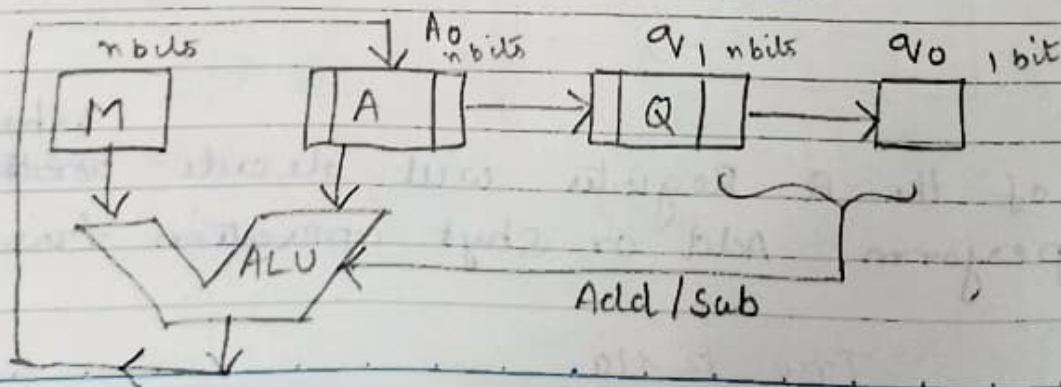 n bits A0 n bits q1 n bits q0 1 bit
M A Q
ALU
Add / Sub